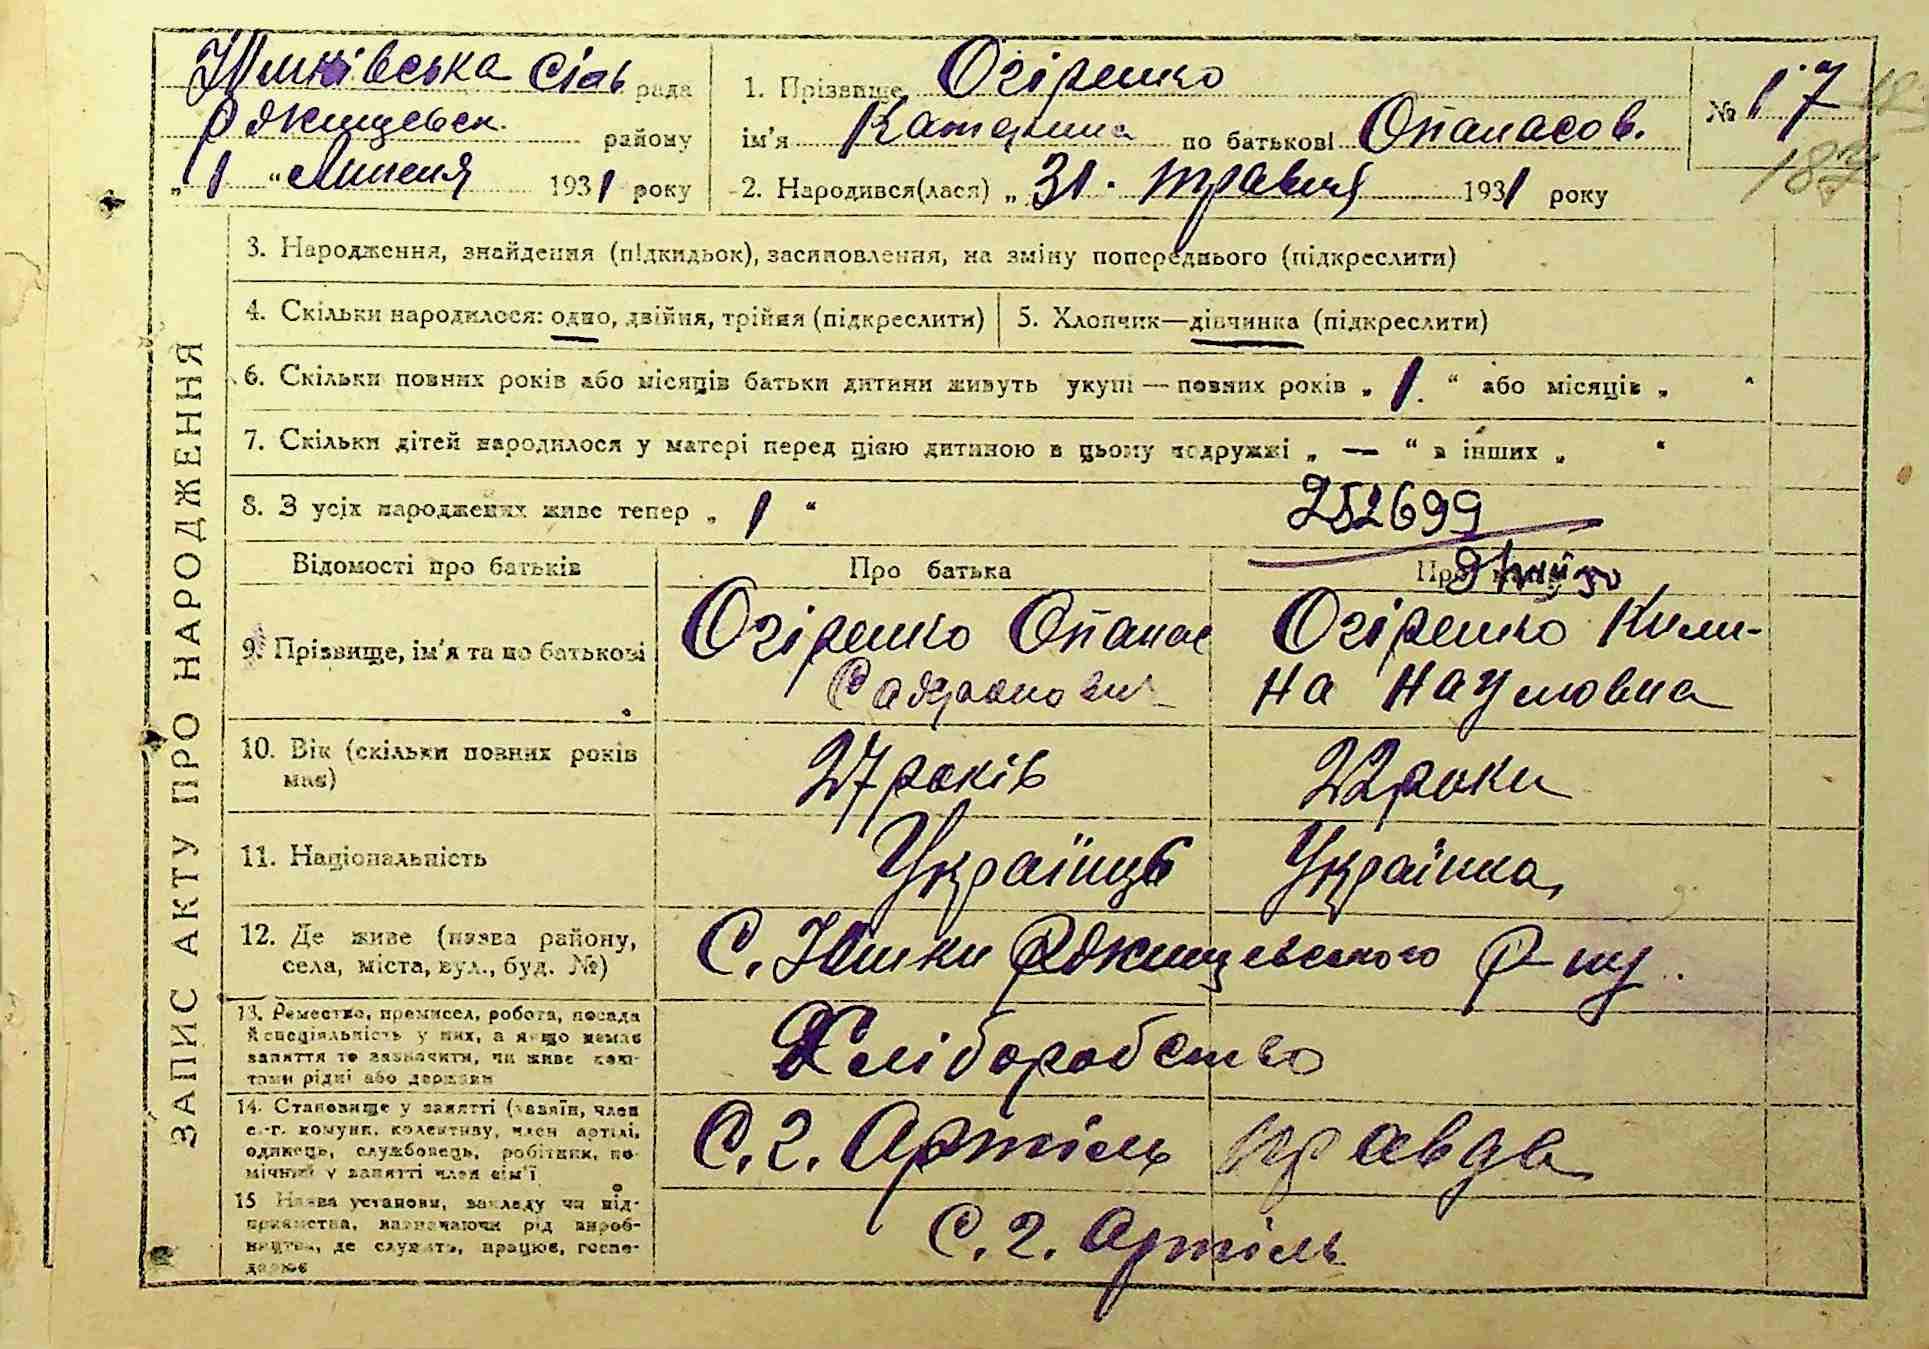 Юшківська сіль рада
Ржищевськ. району
„ 1 " Липня 1931 року
1. Прізвище Огіренко
ім'я Катерина по батькові Опанасов.
2. Народився(лася) „ 31. травня 1931 року
№ 17
187
ЗАПИС АКТУ ПРО НАРОДЖЕННЯ
3. Народження, знайдення (підкидьок), засиновлення, на зміну попереднього (підкреслити)
4. Скільки народилося: одно, двійня, трійня (підкреслити) 5. Хлопчик—дівчинка (підкреслити)
6. Скільки повних років або місяців батьки дитини живуть укупі — повних років „ 1. " або місяців „ "
7. Скільки дітей народилося у матері перед цією дитиною в цьому подружжі „ — " в інших „ "
8. З усіх народжених живе тепер „ 1 "
252699
Відомості про батьків Про батька
9. Прізвище, ім'я та по батькові
Огіренко Опанас
Сафронович
Огіренко Кили-
на Наумовна
10. Вік (скільки повних років
має)
27 років 22 роки
11. Національність Українць Українка
12. Де живе (назва району,
села, міста, вул., буд. №)
С. Юшки Ржищевського Р-ну.
13. Ремество, промисел, робота, посада
й спеціяльність у них, а якщо немає
заняття то зазначити, чи живе кош-
тами рідні або держави
Хліборобство
14. Становище у занятті (хазяїн, член
с.-г. комуни, колективу, член артілі,
одинець, службовець, робітник, по-
мічний у занятті член сім'ї
С. г. Артіль правда
15 Назва установи, закладу чи під-
приємства, зазначаючи рід вироб-
ництва, де служить, працює, госпо-
дарює
С. г. Артіль